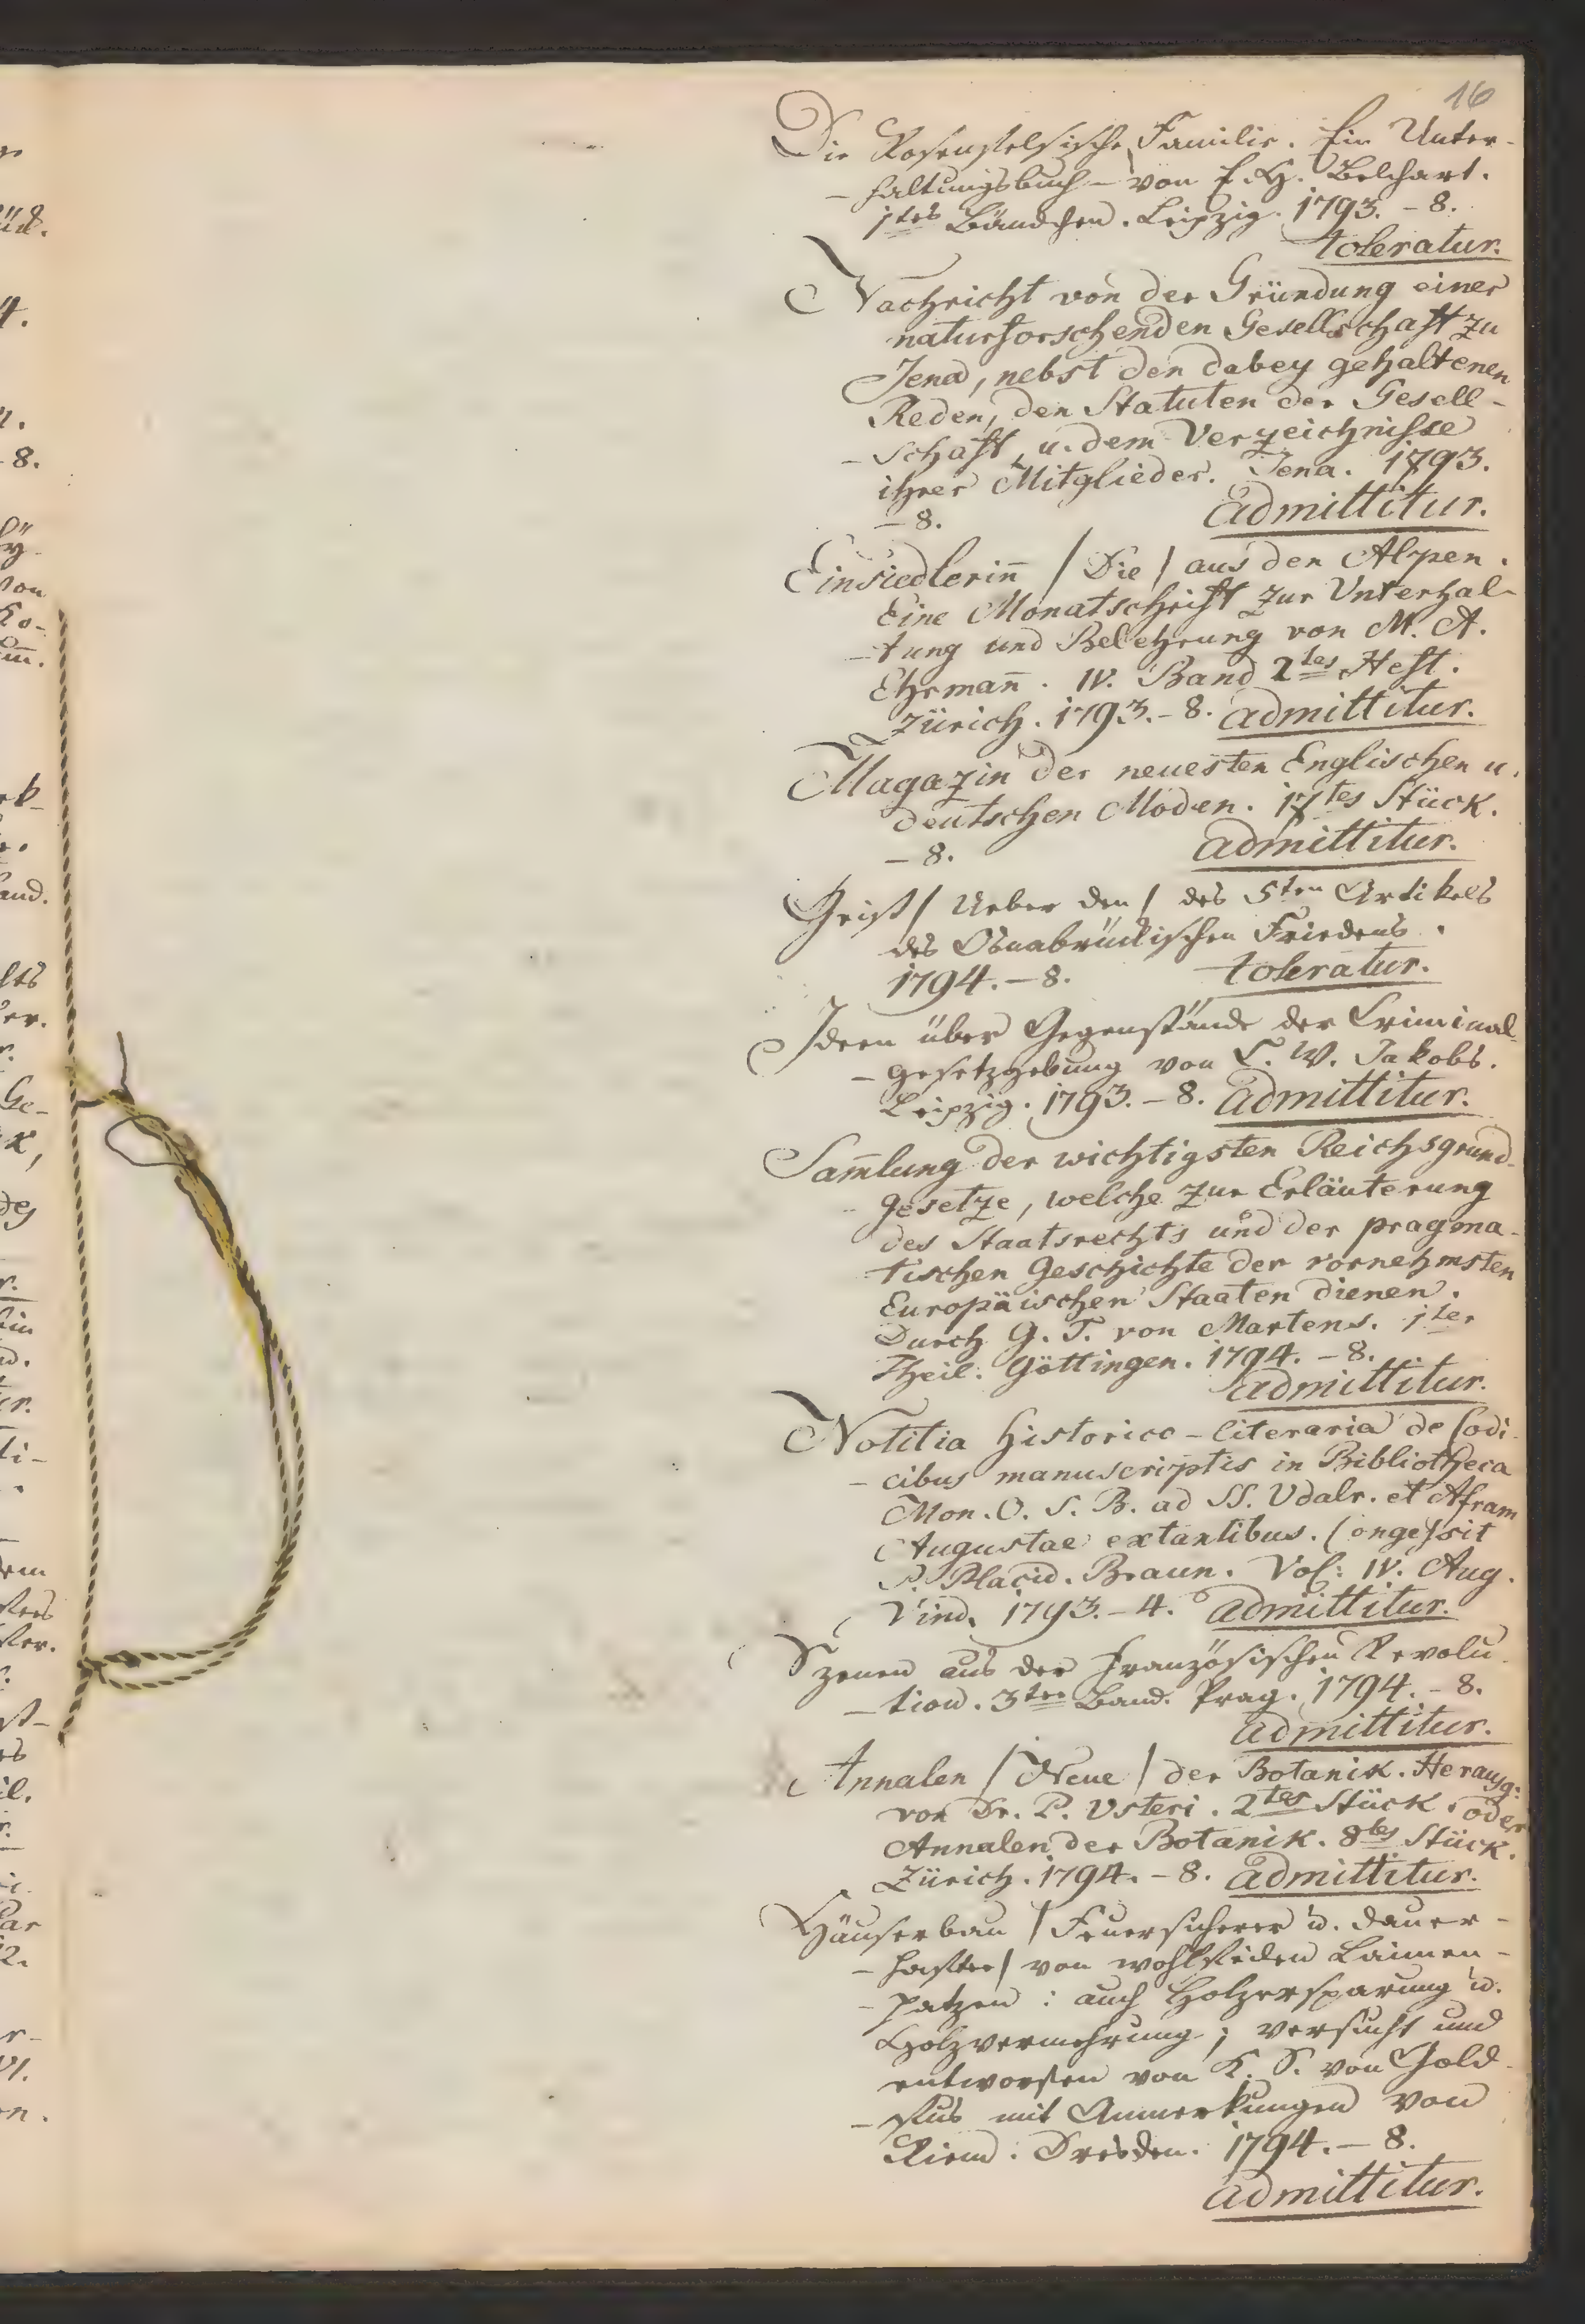 16
Die Rosenfelsische Familie. Ein Unter-
- haltungsbuch - von E. H. Belchart.
1tes Bändchen. Leipzig. 1793. - 8.
toleratur.
Nachricht von der Gründung einer
naturforschenden Gesellschaft zu
Jena, nebst den dabey gehaltenen
Reden, den Statuten der Gesell-
- schaft, u. dem Verzeichnisse
ihrer Mitglieder. Jena. 1793.
- 8. admittitur.
Einsiedlerin̄ / Die / aus den Alpen.
Eine Monatschrift zur Unterhal-
- tung und Belehrung von M. A.
Ehrman̄. IV. Band 2tes Heft.
Zürich. 1793. - 8. admittitur.
Magazin der neuesten Englischen u.
deutschen Moden. 17tes Stück.
- 8. admittitur.
Geist / Ueber den / des 5ten Artikels
des Osnabrückischen Friedens.
1794. - 8. toleratur.
Ideen über Gegenstände der Criminal-
- gesetzgebung von L. W. Jakobs.
Leipzig. 1793. - 8. admittitur.
Sam̄lung der wichtigsten Reichsgrund-
gesetze, welche zur Erläuterung
des Staatsrechts und der pragma-
tischen Geschichte der vornehmsten
Europäischen Staaten dienen.
Durch G. F. von Martens. 1ter
Theil. Göttingen. 1794. - 8.
admittitur.
Notitia historico - literaria de Codi-
- cibus manuscriptis in Bibliotheca
Mon. O. S. B. ad SS. Udalr. et Afram
Augustae extantibus. Congessit
P. Placid. Braun. Vol: IV. Aug.
Vind. 1793. - 4. admittitur.
Szenen aus der französischen Revolu-
- tion. 3ter Band. Prag. 1794. - 8.
admittitur.
Annalen / Neue / der Botanik. Herausg:
von Dr. P. Usteri. 2tes Stück. oder
Annalen der Botanik. 8tes Stück.
Zürich. 1794. - 8. admittitur.
Häuserbau / Feuersicherer u. dauer-
- hafter / von wohlfeilen Laimen-
- patzen: auch Holzersparung u.
Holzvermehrung; versucht und
entworfen von K. S. von Gold-
- fus mit Anmerkungen von
Riem. Dresden. 1794. - 8.
admittitur.